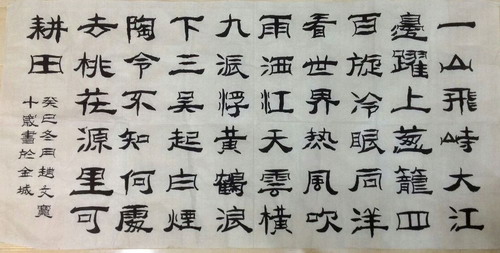 一山飛峙大江
邊躍上葱籠四
百旋冷眼向洋
看世界熱風吹
雨洒江天雲橫
九派浮黃鶴浪
下三吳起白煙
陶令不知何處
去桃花源里可
耕田
癸巳冬雨趙文寬
十歲書於金城